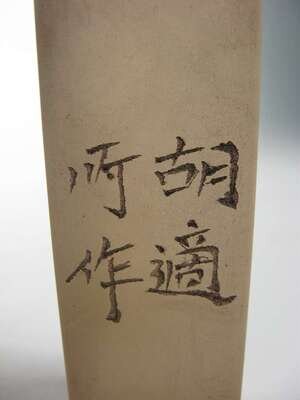 胡適
所作